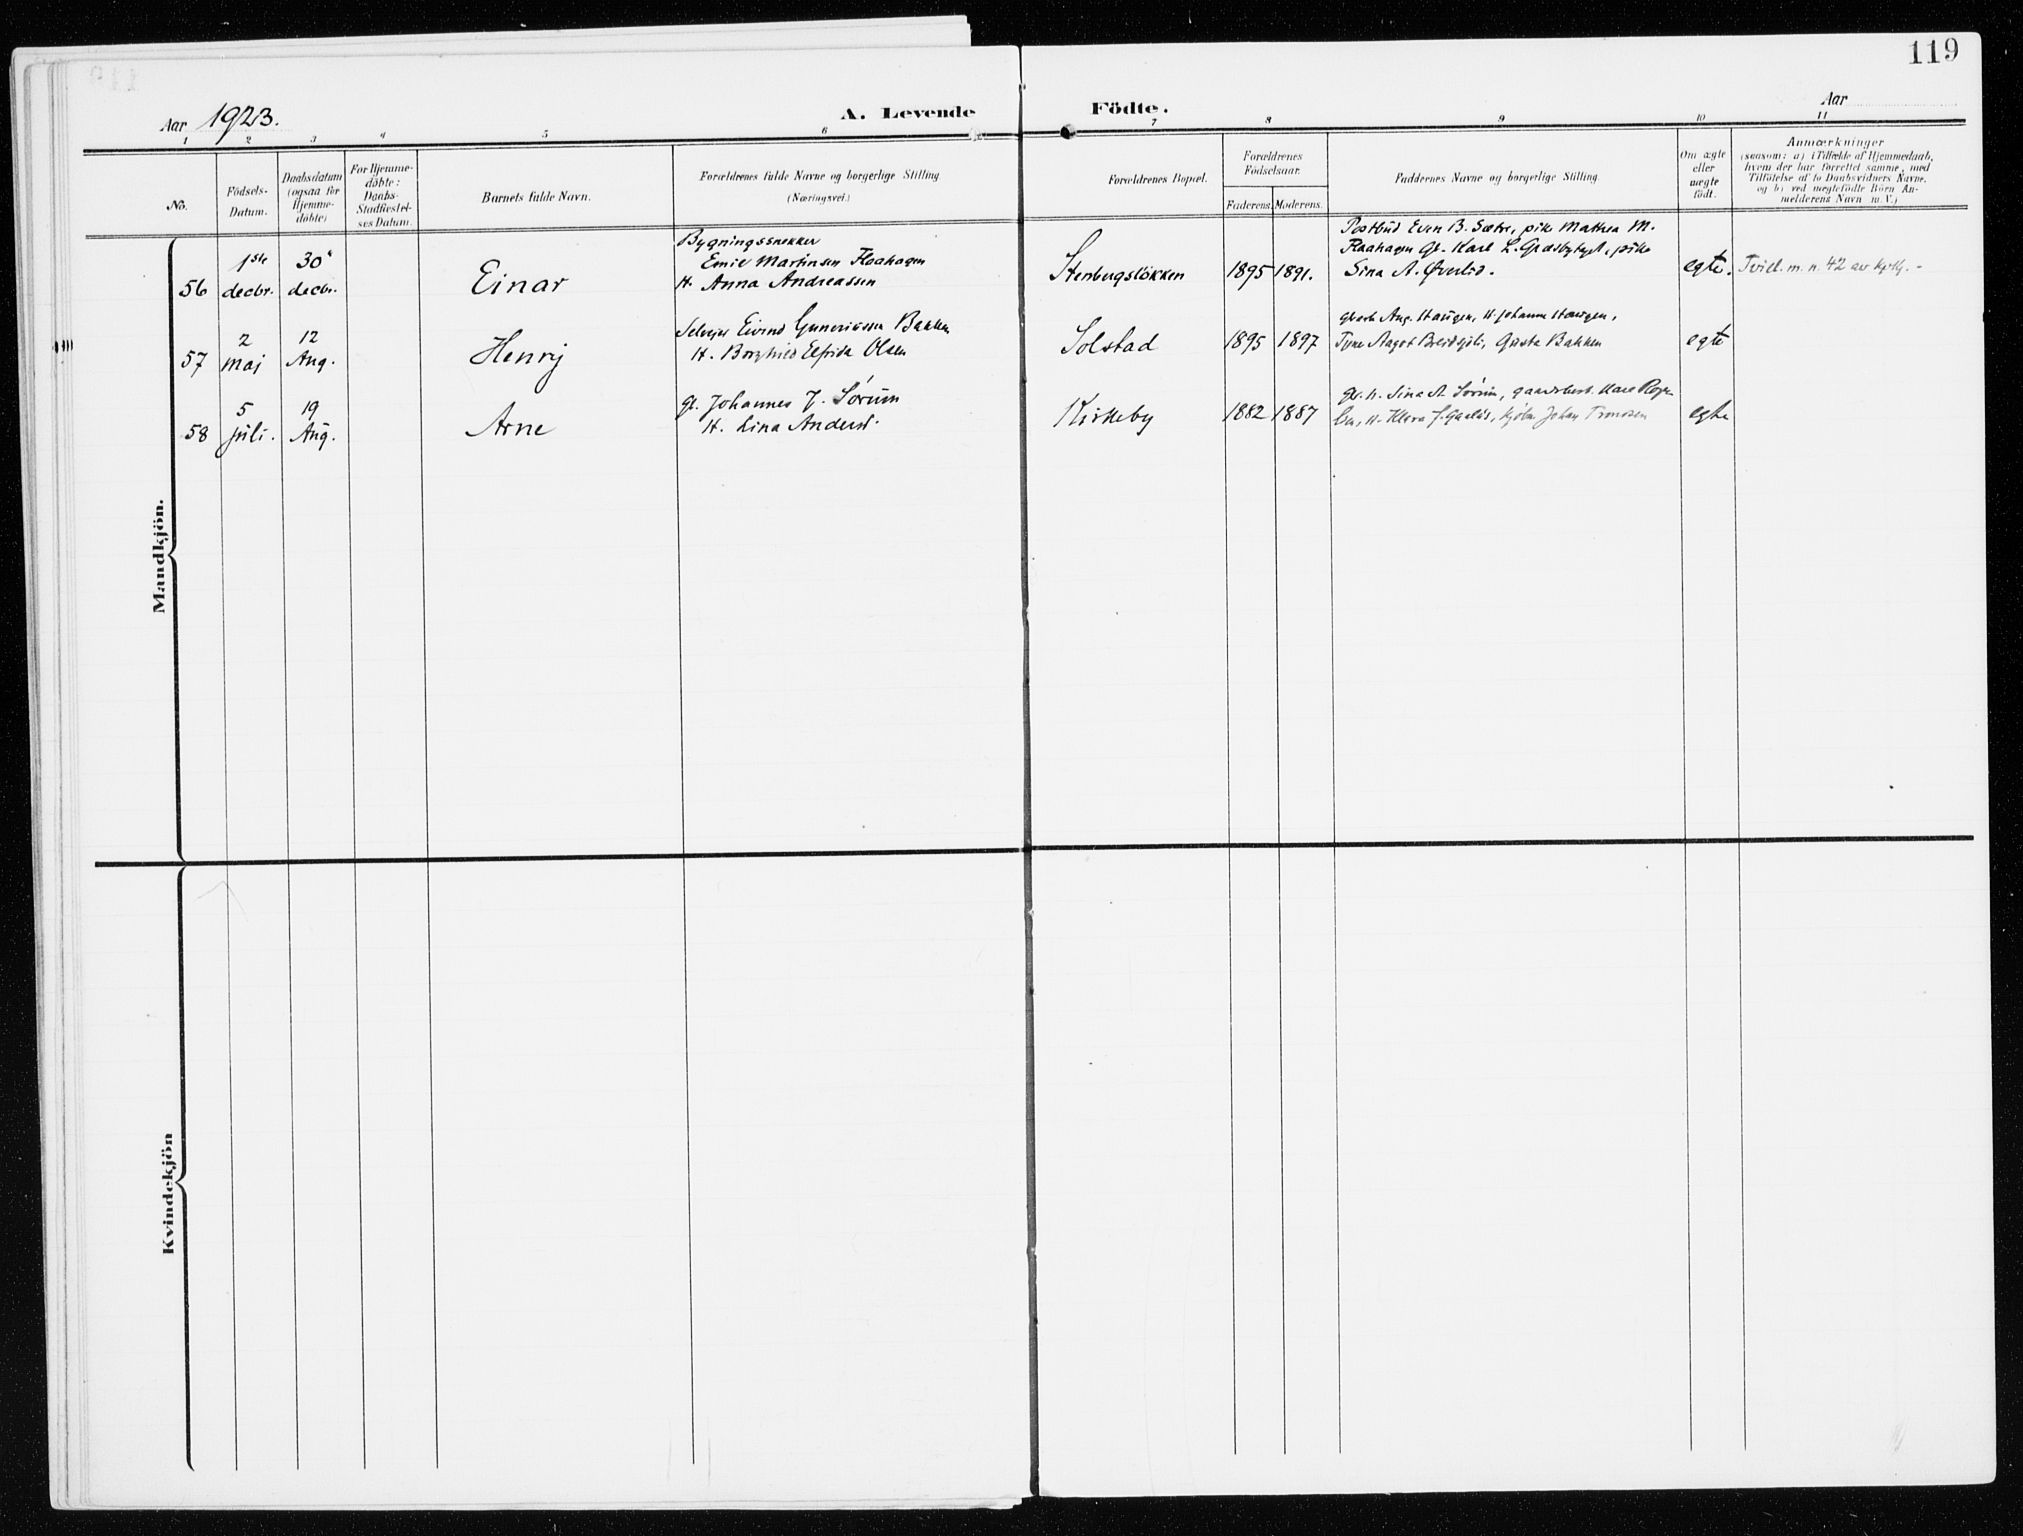 119
Aar 1923.
A. Levende Födte.
Aar
1 2 3 4 5 6 7 8 9 10 11
No.
Födsels-
Datum.
Daabsdatum
(ogsaa for
Hjemme-
döbte)
For Hjemme-
döbte:
Daabs-
Stadfæstel-
ses Datum.
Barnets fulde Navn.
Forældrenes fulde Navne og borgerlige Stilling
(Næringsvei.)
Forældrenes Bopæl.
Forældrenes
Födselsaar.
Faderens. Moderens.
Faddernes Navne og borgerlige Stilling.
Om ægte
eller
uægte
födt.
Anmærkninger
(saasom: a) i Tilfælde af Hjemmedaab,
hvem der har forrettet samme, med
Tilföielse af to Daabsvidners Navne,
og b) ved uægtefödte Börn An-
melderens Navn m. V.)
Mandkjön.
56
1ste
decbr.
30'
decbr.
Einar
Bygningssnekker
Emil Martinsen Flaahagen
H. Anna Andreassen
Stenbergslökken
1895 1891.
Postbud Even B. Sætre, pike Mathea M.
Flaahagen Gb. Karl L. Græsbyhagt, pike
Sina A. Øverlid.
egte.
Tvill. m. n. 42 av kv.kj. -
57
2
maj
12
Aug.
Henrij
Selveier Eivind Gunerinssen Bakken
H. Borghild Elfrida Olsen
Solstad
1895 1897
Aug. Haugen, H. Johanne Haugen,
Aagot Gusta Bakken
egte
58
5
juli.
19
Aug.
Arne
Gb. Johannes J. Sörum
H. Lina Anderst.
Kirkeby
1882 1887
Gb. H. Sina A. Sörum, gaardbest. Kare
H. Klara J. Johan Tronsen
egte
Kvindekjön